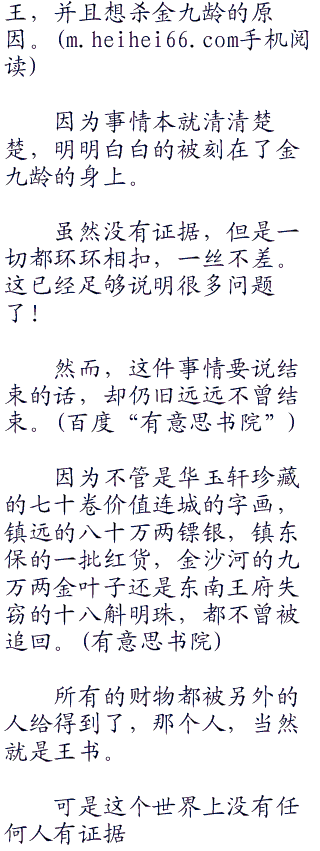 王，并且想杀金九龄的原
因。(m.heihei66.com手机阅
读)
因为事情本就清清楚
楚，明明白白的被刻在了金
九龄的身上。
虽然没有证据，但是一
切都环环相扣，一丝不差。
这已经足够说明很多问题
了！
然而，这件事情要说结
束的话，却仍旧远远不曾结
束。(百度“有意思书院”)
因为不管是华玉轩珍藏
的七十卷价值连城的字画，
镇远的八十万两镖银，镇东
保的一批红货，金沙河的九
万两金叶子还是东南王府失
窃的十八斛明珠，都不曾被
追回。(有意思书院)
所有的财物都被另外的
人给得到了，那个人，当然
就是王书。
可是这个世界上没有任
何人有证据